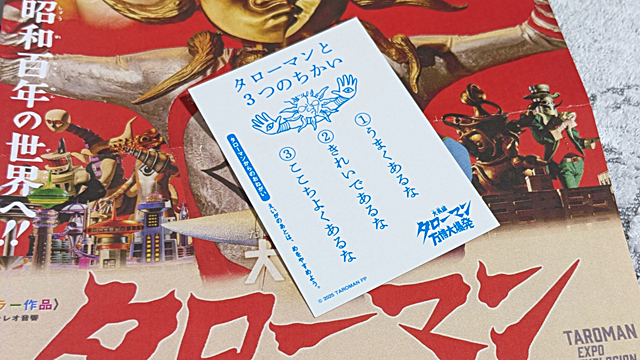 昭和百年の世界へ!!
しょう
わ
タローマンと
3つのちかい
①うまくあるな
②きれいであるな
③ここちよくあるな
タローマンからのおねがい
えいがのあとは、めをやすめよう。
大長編
タローマン
万博大爆発
© 2025 TAROMAN FP
大
ラー作品〉
レオ音響
タローマン
TAROMAN
EXPO
EXPLOSION